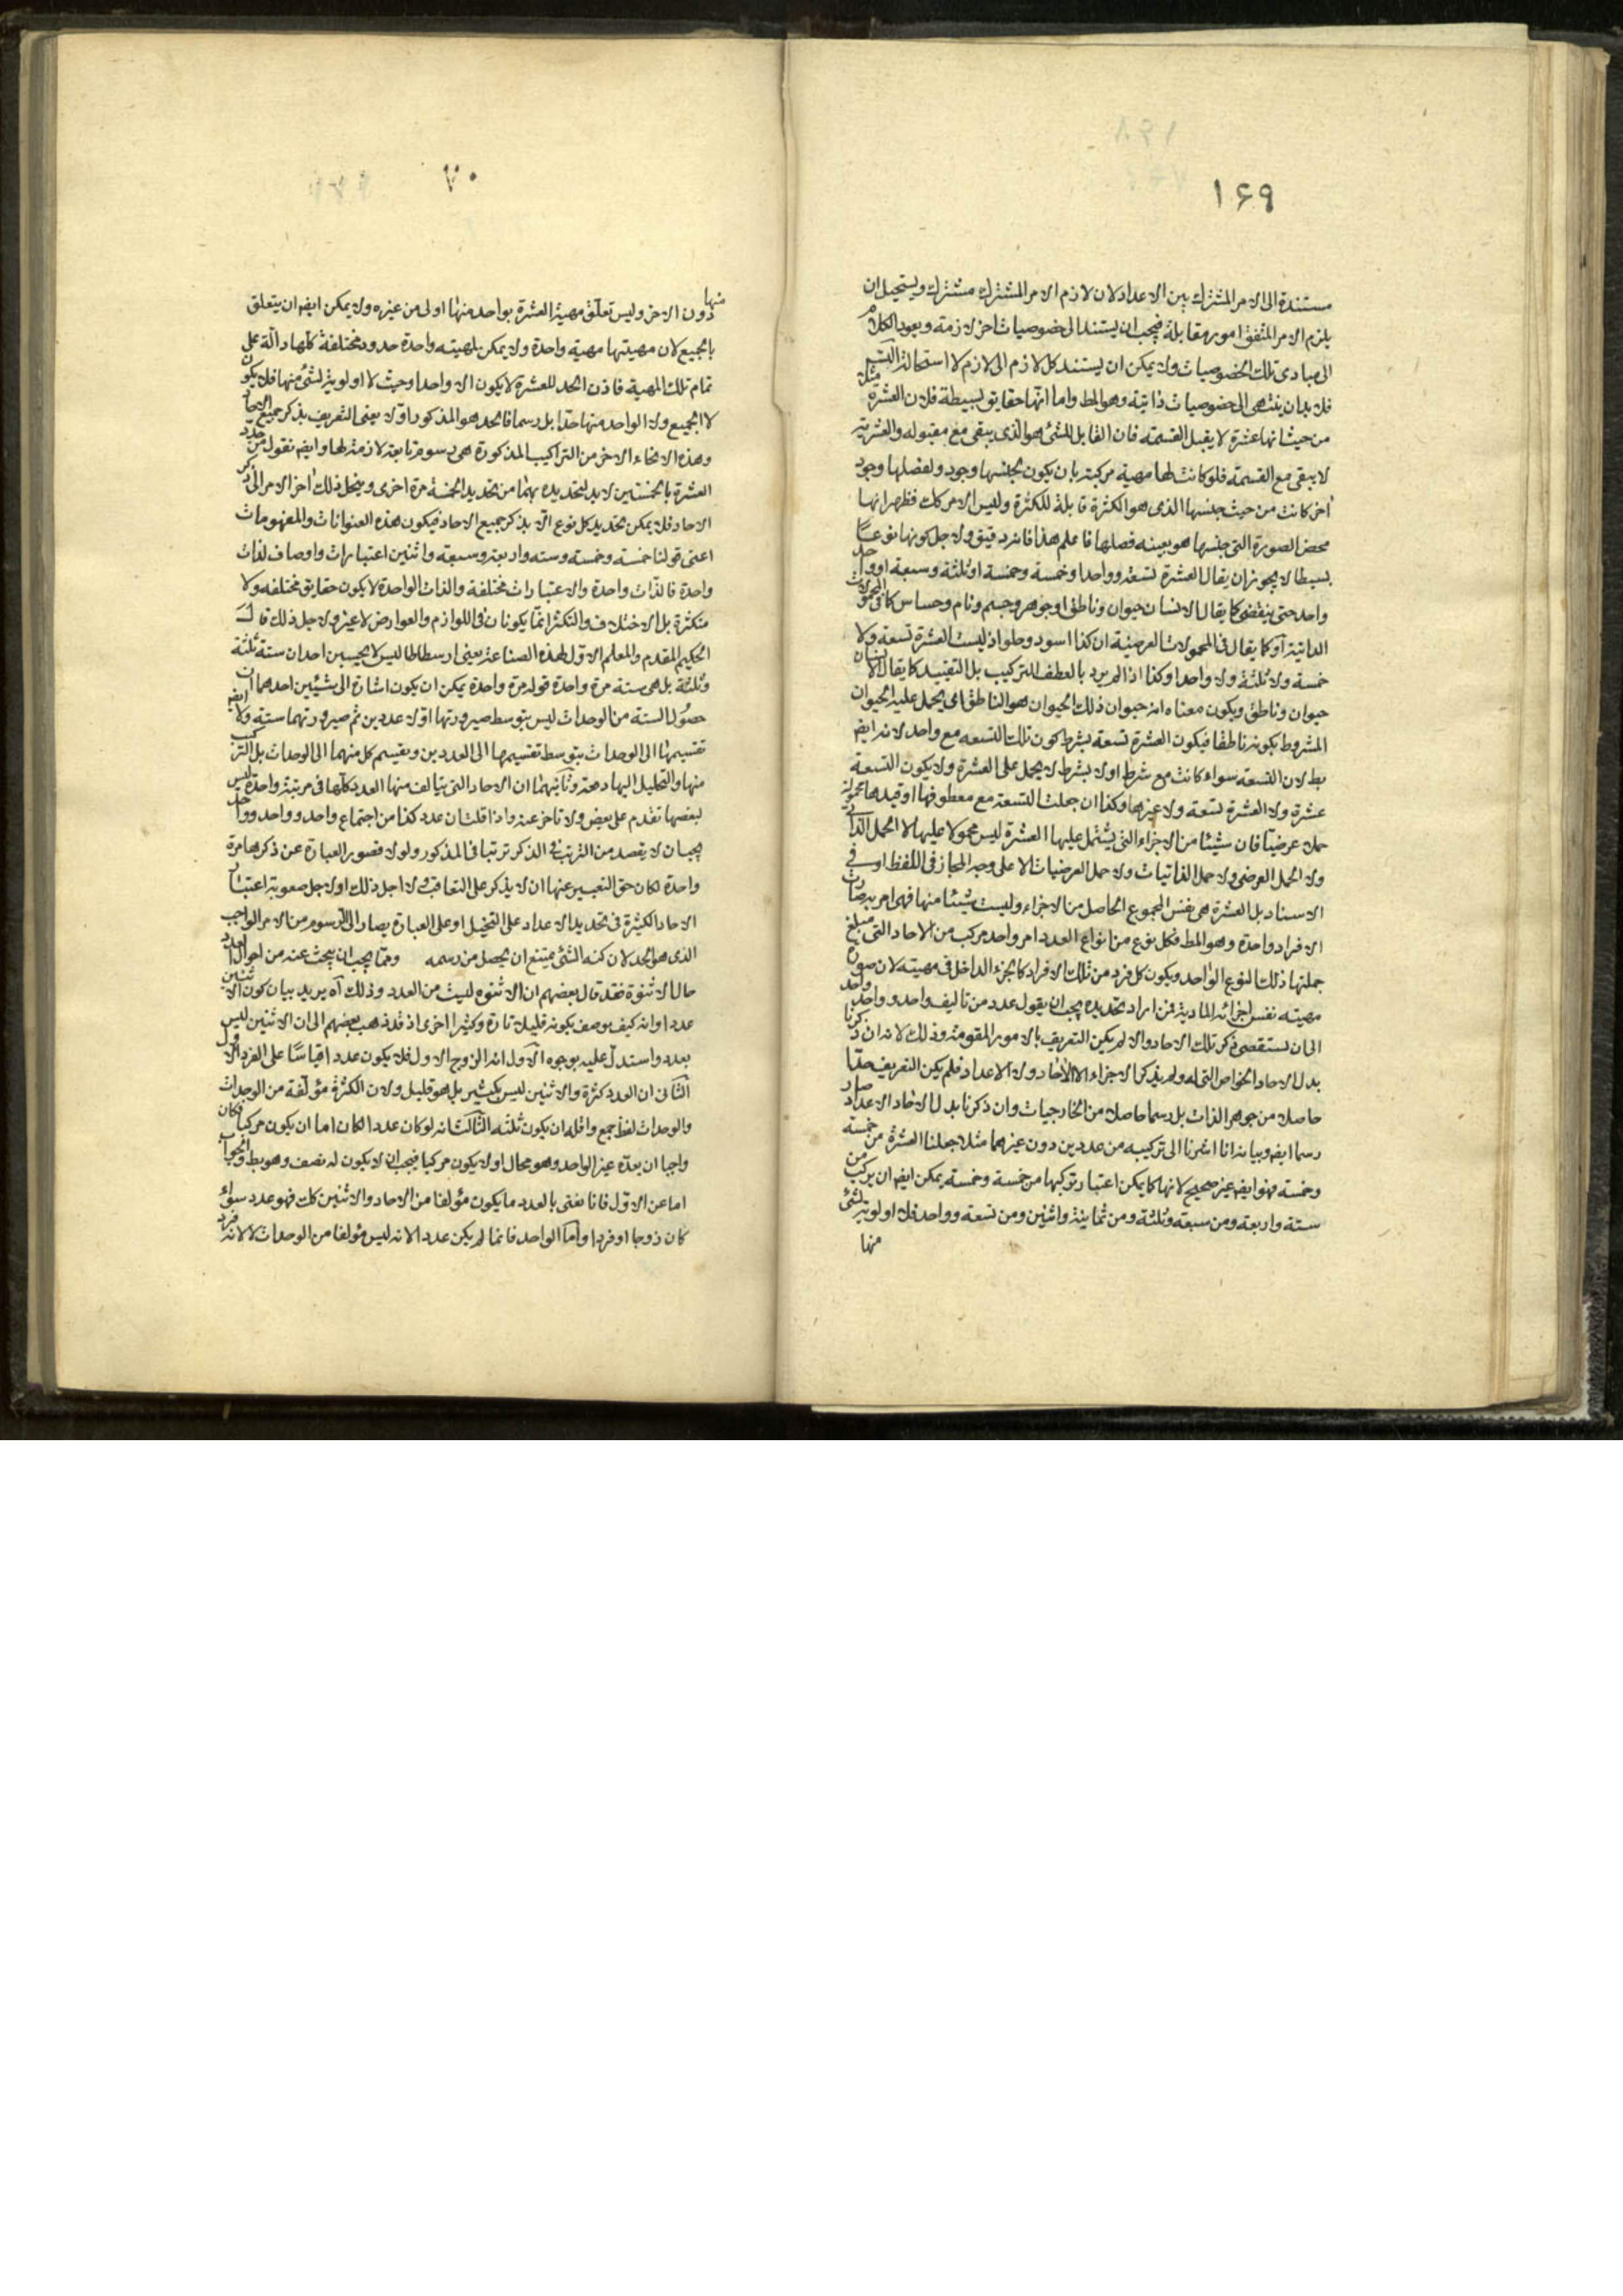 ١۶٩
مستندة الى الامر المشترك بين الاعداد لان لازم الامر المشترك مشترك ويستحيل ان
يلزم الامر المتفق امور متقابلة فيجب ان يستند الى خصوصيات اخر لازمة ويعود الكلام
الى مبادى تلك الخصوصيات ولا يمكن ان يستند كل لازم الى لازم لاستحالة التسلسل
فلا بد ان ينتهى الى خصوصيات ذاتية وهو المط واما انها حقايق بسيطة فلان العشرة مثلا
من حيث انها عشرة لا يقبل القسمة فان القابل للشئ هو الذى يبقى مع مقبوله والعشرية
لا يبقى مع القسمة فلو كانت لها مهية مركبة بان يكون لجنسها وجود ولفصلها وجود
اخر كانت من حيث جنسها الذى هو الكثرة قابلة للكثرة وليس الامر كك فظهر انها
محض الصورة التى جنسها هو بعينه فصلها فاعلم هذا فانه دقيق ولاجل كونها نوعا
بسيطا لا يجوز ان يقال العشرة تسعة وواحد او خمسة وخمسة او ثلثة وسبعة او واحد
واحد حتى ينقضى كما يقال الانسان حيوان وناطق او جوهر وجسم ونام وحساس كما فى المحمولات
الذاتية او كما يقال فى المحمولات العرضية ان كذا اسود وحلو اذ ليست العشرة تسعة ولا
خمسة ولا ثلثة ولا واحدا وكذا اذا لم يرد بالعطف التركيب بل التقييد كما يقال الانسان
حيوان وناطق ويكون معناه انه حيوان ذلك الحيوان هو الناطق اى يحمل عليه الحيوان
المشروط بكونه ناطقا فيكون العشرة تسعة بشرط كون تلك التسعة مع واحد لانه ايضا
بط لان التسعة سواء كانت مع شرط اولا بشرط لا يحمل على العشرة ولا يكون التسعة
عشرة ولا العشرة تسعة ولا غيرها وكذا ان جعلت التسعة مع معطوفها او قيدها محمولة
حملا عرضيا فان شيئا من الاجزاء التى يشتمل عليها العشرة ليس محمولا عليها لا الحمل الذاتى
ولا الحمل العرضى ولا حمل الذاتيات ولا حمل العرضيات الا على وجه المجاز فى اللفظ او فى
الاسناد بل العشرة هى نفس المجموع الحاصل من الاجزاء وليست شيئا منها فهى امر به صارت
الافراد واحدة وهو المط فكل نوع من انواع العدد امر واحد مركب من الاحاد التى مبلغ
جملتها ذلك النوع الواحد ويكون كل فرد من تلك الافراد كالجزء الداخل فى مهيته لان صورة
مهيته نفس اجزائه المادية فمن اراد تحديده يجب ان يقول عدد من تاليف واحد وواحد وواحد
الى ان يستقصى ذكر تلك الاحاد والا لم يكن التعريف بالامور المقومة وذلك لانه ان ذكرنا
بدل الاحاد الخواص التى له ولم يذكر الاجزاء لا الاحاد ولا الاعداد فلم يكن التعريف حدا
حاصلا من جوهر الذات بل رسما حاصلا من الخارجيات وان ذكرنا بدل الاحاد الاعداد صار
رسما ايضا وبيانه انا اشرنا الى تركيبه من عددين دون غيرهما مثلا جعلنا العشرة من خمسة
وخمسة فهو ايضا غير صحيح لانها كما يمكن اعتبار تركبها من خمسة وخمسة يمكن ايضا ان يركب من
ستة واربعة ومن سبعة وثلثة ومن ثمانية واثنين ومن تسعة وواحد فلا اولوية لشئ
منها
منها
دون الاخر وليس تعلق مهية العشرة بواحد منها اولى من غيره ولا يمكن ايضا ان يتعلق
بالجميع لان مهيتها مهية واحدة ولا يمكن لمهية واحدة حدود مختلفة كلها دالة على
تمام تلك المهية فاذن الحد للعشرة لا يكون الا واحدا وحيث لا اولوية لشئ منها فلا يكون
لا الجميع ولا الواحد منها حدا بل رسما فالحد هو المذكور اولا يعنى التعريف بذكر جميع الاحاد
وهذه الانحاء الاخر من التراكيب المذكورة هى رسوم تابعة لازمة لها وايضا نقول من حدد
العشرة بالخمستين لا بد لتحديده بهما من تحديد الخمسة مرة اخرى وينحل ذلك اخر الامر الى ذكر
الاحاد فلا يمكن تحديد كل نوع الا بذكر جميع الاحاد فيكون هذه العنوانات والمفهومات
اعنى قولنا خمسة وخمسة وستة واربعة وسبعة واثنين اعتبارات واوصاف لذات
واحدة فالذات واحدة والاعتبارات مختلفة والذات الواحدة لا يكون حقايق مختلفة ولا
متكثرة بل الاختلاف والتكثر انما يكونان فى اللوازم والعوارض لا غير ولاجل ذلك قال
الحكيم المقدم والمعلم الاول لهذه الصناعة يعنى ارسطاطاليس لا يحسبن احد ان ستة ثلثة
وثلثة بل هى ستة مرة واحدة قوله مرة واحدة يمكن ان يكون اشارة الى شيئين احدهما ان
حصول الستة من الوحدات ليس بتوسط صيرورتها اولا عددين ثم صيرورتهما ستة ولا ايضا
تقسيمها الى الوحدات بتوسط تقسيمها الى العددين وتقسيم كل منهما الى الوحدات بل التركيب
منها والتحليل اليها دفعة وثانيهما ان الاحاد التى يتالف منها العدد كلها فى مرتبة واحدة ليس
لبعضها تقدم على بعض ولا تاخر عنه واذا قلت ان عدد كذا من اجتماع واحد وواحد وواحد
يجب ان لا يقصد من الترتيب فى الذكر ترتبا فى المذكور ولولا قصور العبارة عن ذكرها مرة
واحدة لكان حق التعبير عنها ان لا يذكر على التعاقب ولاجل ذلك او لاجل صعوبة اعتبار
الاحاد الكثيرة فى تحديد الاعداد على التخيل او على العبارة يصار الى الرسوم من الامر الواجب
الذى هو الحد لان كنه الشئ يمتنع ان يحصل من رسمه ومما يجب ان يبحث عنه من احوال العدد
حال الاثنوة فقد قال بعضهم ان الاثنوة ليست من العدد وذلك آه يريد بيان كون الاثنين
عددا وانه كيف يوصف بكونه قليلا تارة وكثيرا اخرى اذ قد ذهب بعضهم الى ان الاثنين ليس
بعدد واستدل عليه بوجوه الاول انه الزوج الاول فلا يكون عددا قياسا على الفرد الاول
الثانى ان العدد كثرة والاثنين ليس بكثير بل هو قليل ولان الكثرة مؤلفة من الوحدات
والوحدات لفظ جمع واقله ان يكون ثلثه الثالث انه لو كان عددا لكان اما ان يكون مركبا فكان
واجبا ان يعده غير الواحد وهو محال او لا يكون مركبا فيجب ان لا يكون له نصف وهو بط والجواب
اما عن الاول فانا نعنى بالعدد ما يكون مؤلفا من الاحاد والاثنين كك فهو عدد سواء
كان زوجا او فردا واما الواحد فانما لم يكن عددا لانه ليس مؤلفا من الوحدات لا لانه فرد